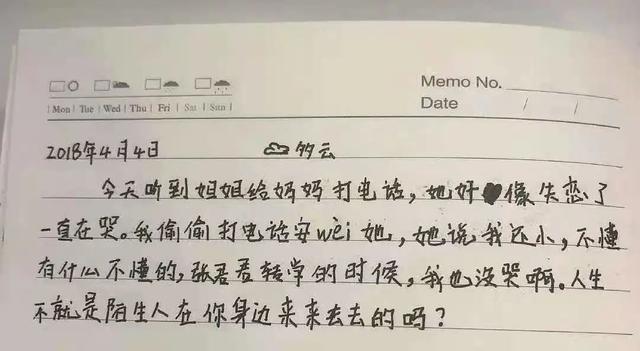 Memo No.
Mon | Tue | Wed | Thu | Fri | Sat | Sun |
Date / /
2018年4月4日 多云
今天听到姐姐给妈妈打电话，她好像失恋了
一直在哭。我偷偷打电话安wèi她，她说我还小，不懂
有什么不懂的，张君君转学的时候，我也没哭啊。人生
不就是陌生人在你身边来来去去的吗？